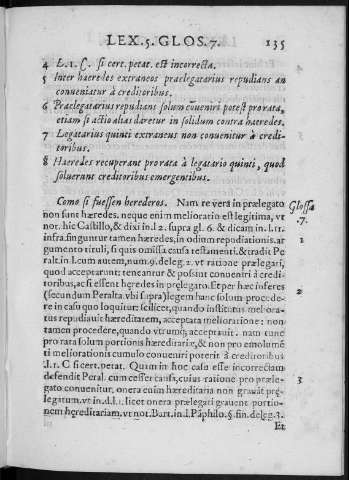 LEX. 5. GLOS. 7. 135
4 L. 1. C. si cert. petat. est incorrecta.
5 Inter haeredes extraneos praelegatarius repudians an
conueniatur à creditoribus.
6 Praelegatarius repudians solum cōueniri potest pro rata,
etiam si actio alias daretur in solidum contra haeredes.
7 Legatarius quinti extraneus non conuenitur à credi-
toribus.
8 Haeredes recuperant pro rata à legatario quinti, quod
soluerunt creditoribus emergentibus.
Como si fuessen herederos. Nam re vera in prælegato
non sunt hæredes. neque enim melioratio est legitima, vt
not. hîc Castillo, & dixi in l. 2. supra gl. 6. & dicam in l. 11.
infra. finguntur tamen hæredes, in odium repudiationis. ar
gumento tituli, si quis omissa causa testamenti. & tradit Pe
ralt. in l. cum autem, num. 9. de leg. 2. vt ratione prælegati,
quod acceptarunt: teneantur & possint conueniri à credi-
toribus, ac si essent hęredes in prelegato. Et per hæc infero
(secundum Peralta vbi supra) legem hanc solum procede-
re in casu quo loquitur: scilicet, quando institutus meliora-
tus repudiauit hæreditatem, acceptata melioratione: non
tamen procedere, quando vtrumq; acceptauit. nam tunc
pro rata solum portionis hæreditariæ, & non pro emolumē
ti meliorationis cumulo conueniri poterit à creditoribus
.l. 1. C si cert. petat. Quam in hoc casu esse incorrectam
defendit Peral. cum cesset causa, cuius ratione pro præle-
gato conuenitur, onera enim hæreditaria non grauāt prę-
legatum. vt in d. l. 1. licet onera prælegati grauent portio-
nem hęreditariam, vt not. Bart. in l. Pāphilo. §. fin. de leg. 3.
Et
Glossa
7.
1
2
3